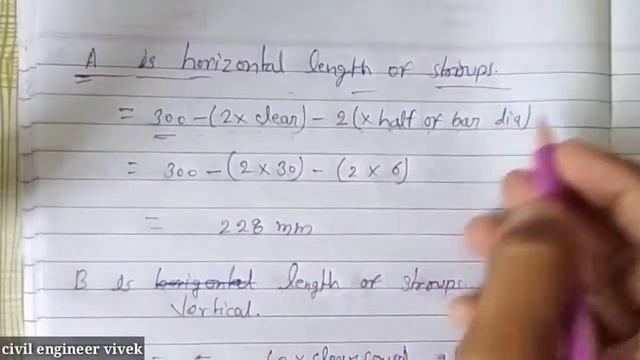 A is horizontal length of stirrups.
= 300 - (2 x clear) - 2 (x half of bar dia)
= 300 - (2 x 30) - (2 x 6)
= 228 mm
B is horizontal length of stirrups
Vertical.
civil engineer vivek